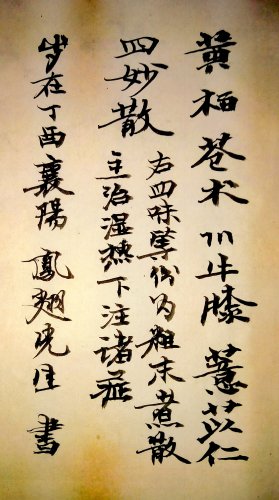 黄柏苍术川牛膝薏苡仁
四妙散
右四味等份为粗末煮散
主治湿热下注诸症
岁在丁酉襄阳凤翅晓佳书